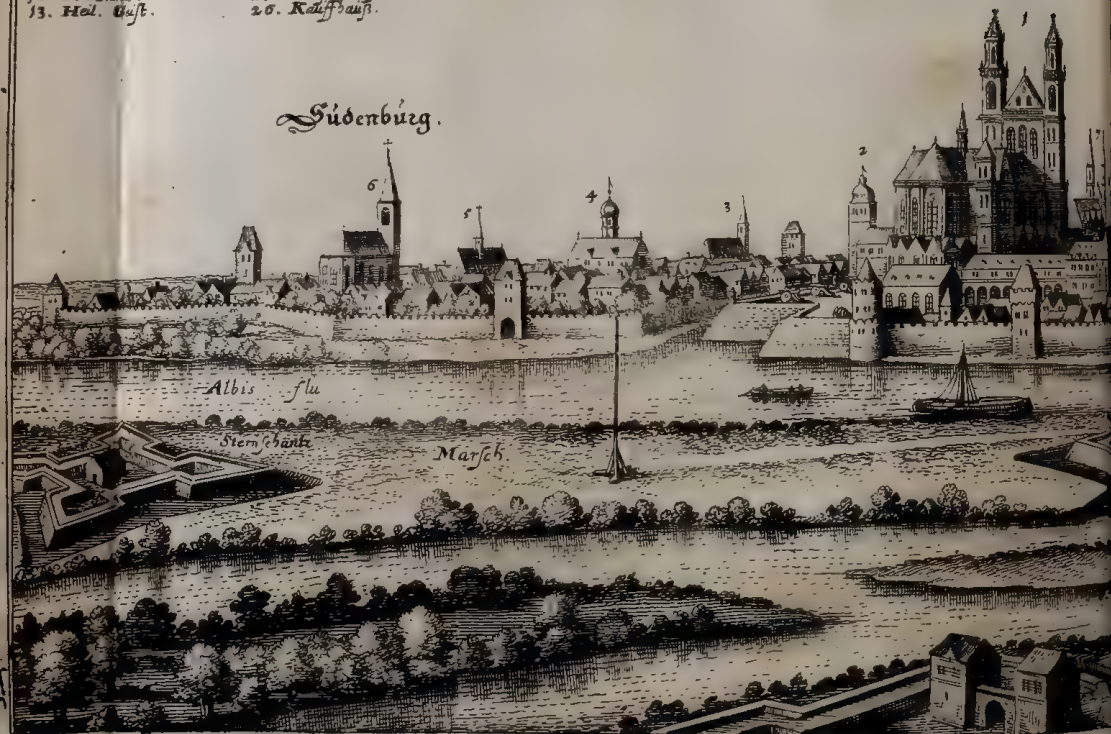 13. Heil. Gäst.
26. Kauffhauß.
1
Südenbürg.
2
7
6
4
5
3
Albis flu
Sternschantz
Marsch